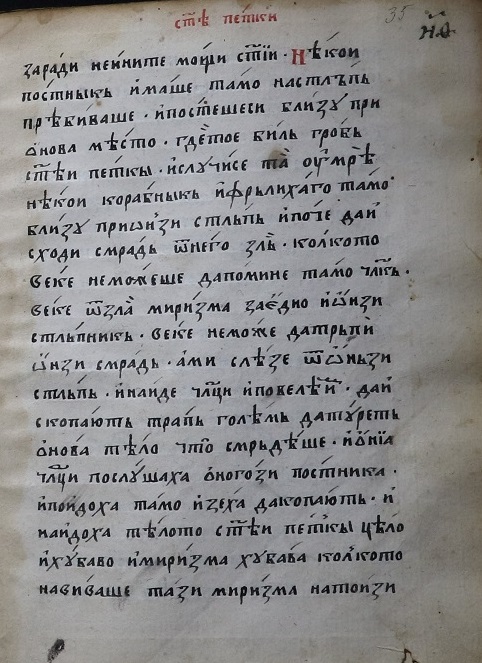 ст҃ѣ петкѝ
35
н҃а
заради неи́ните мо́щи ст҃їи · Нѣ́кои
постны́къ и́маше та́мо настлъ́пь
прѣби́ваше · и҆постѣшеси бли́зу при
о҆нова мѣ́сто · гдѐтое би́ль гробь
ст҃ѣи пет́кы · и҆слꙋчи́се та̀ оу҆мрѣ̀
нѣ́кои корабны́къ и҆фръ́лиха́го та́мо
бли́зꙋ приѡ҆́нзи стлъ́пь и҆поче́ даи҆
схо́ди смра́дь ѿне́го злѣ̀ · ко́лкото
веке́ немо́жеше дапоми́не та́мо чл҃кь ·
веке́ ѿзла̀ мири́зма зае́дно и҆ѡ҆́нзи
стлъ́пникь · веке́ немо́же датръпѝ
ѡ҆́нзи смра́дь · а҆мѝ слѣ́зе ѿѡ҆́нъзи
стлъ́пь · и҆наи́де чл҃ци и҆повелѣ̀и҆м · даи҆
скопаю́ть тра́пь голѣ́мь датꙋ́реть
о҆нова тѣ́ло что̀ смръдѣ́ше · и҆о҆ні́а
чл҃ци послꙋ́шаха о҆ного́зи по́стника ·
и҆пои́доха та́мо и҆зе́ха дакопаю́ть · и҆
наи́доха тѣ́лото ст҃ѣи пет́кы цѣ́ло
и҆хꙋ́баво и҆мири́зма хꙋ́бава ко́лкото
нави́ваше та́зи мири́зма нато́изи